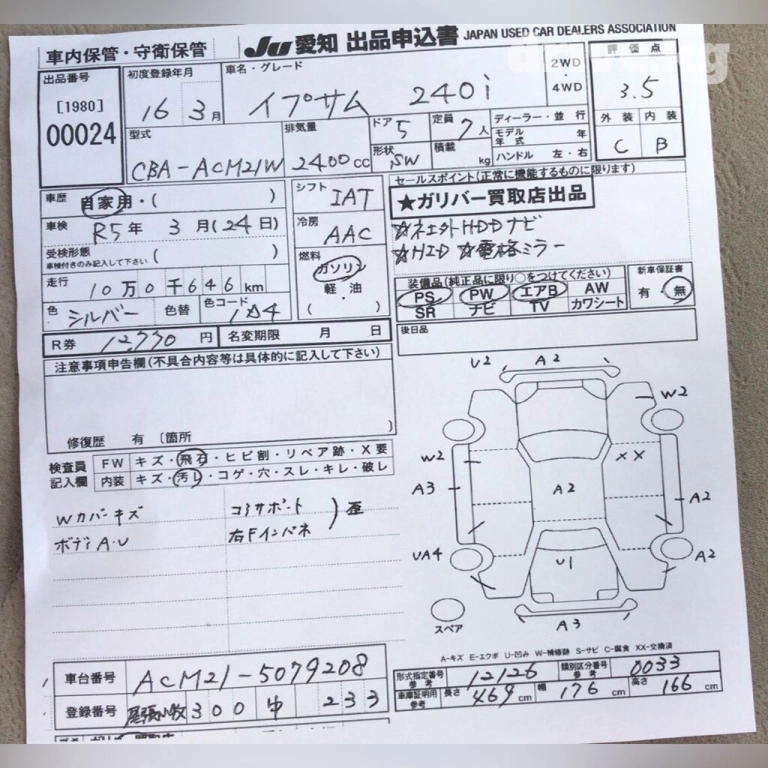 車内保管・守衛保管
JU 愛知 出品申込書 JAPAN USED CAR DEALERS ASSOCIATION
出品番号
[1980]
00024
初度登録年月
16 3月
車名・グレード
イプサム 240i
2WD
・
4WD
評価点
3.5
外装 内装
C B
型式
CBA-ACM21W
排気量
2400cc
ドア 5
形状 SW
定員 7人
積載 kg
ディーラー・並行
モデル年式 年
ハンドル 左・右
車歴 自家用・( )
車検 R5年 3月(24日)
受検形態 ( )
車検付きのみ記入して下さい
走行 10万0千646km
色 シルバー 色替 色コード 1D4
R券 12,770円 名変期限 月 日
シフト IAT
冷房 AAC
燃料
ガソリン
軽・油
( )
セールスポイント(正常に機能するものに限ります)
★ガリバー買取店出品
☆ネエ外HDDナビ
☆HID ☆電格ミラー
装備品(純正品に限り○をつけてください)
PS PW エアB AW
SR ナビ TV カワシート
新車保証書
有・無
後日品
注意事項申告欄(不具合内容等は具体的に記入して下さい)
修復歴 有 〔箇所
検査員記入欄
FW キズ・飛石・ヒビ割・リペア跡・X要
内装 キズ・汚れ・コゲ・穴・スレ・キレ・破レ
Wカバーキズ
ボディA・U
コアサポート
右Fインパネ
)歪
U2 A2
W2
W2 XX
A3 A2 A2
UA4 U1 A2
A3
スペア
A-キズ E-エクボ U-凹み W-補修跡 S-サビ C-腐食 XX-交換済
車台番号 ACM21-5079208
登録番号 尾張小牧 300 ゆ 233
形式指定番号 参考 12126 類別区分番号 参考 0033
車庫証明用 参考 長さ 469cm 幅 176cm 高さ 166cm